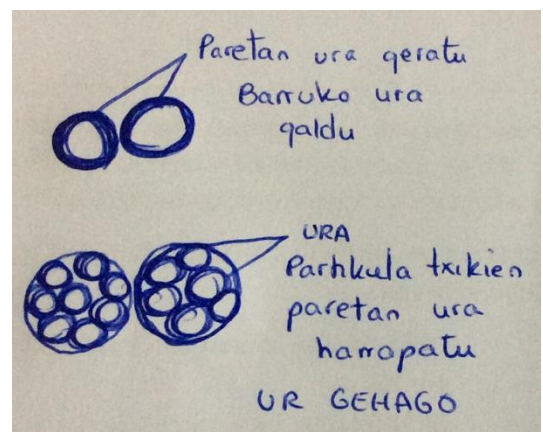 Paretan ura geratu
Barruko ura
galdu
URA
Partikula txikien
paretan ura
harrapatu
UR GEHAGO